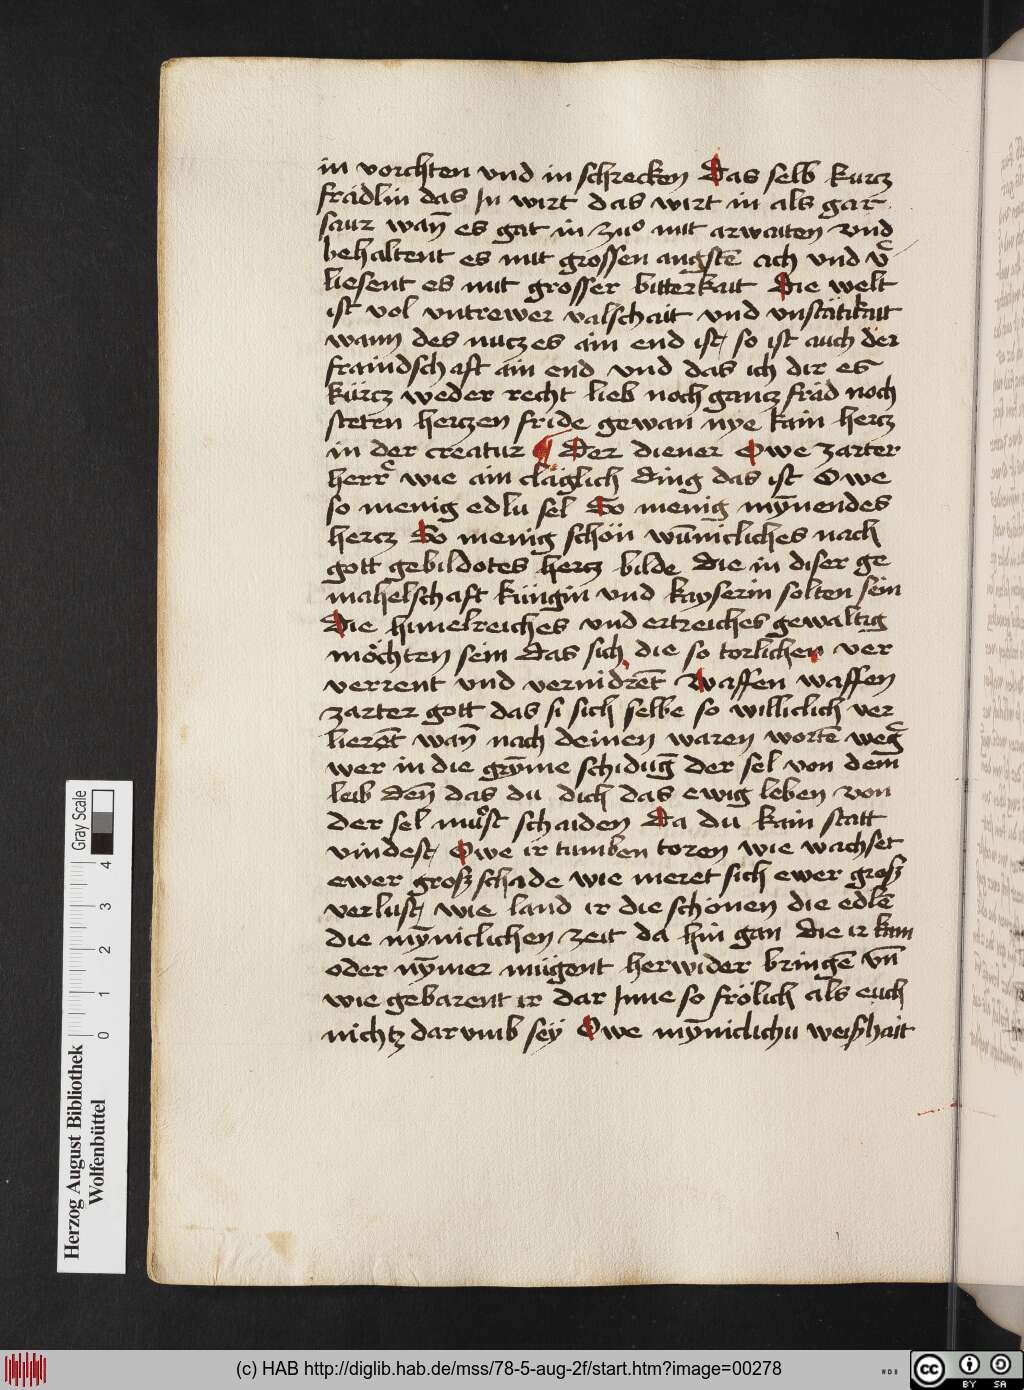 in vorchten vnd in schrecken Das selb kurcz
frädlin das Jn wirt das wirt in als gar
saur wañ es gat in zuͦ mit arwaiten vnd
behaltent es mit grossen angstē ach vnd v̄
liesent es mit grosser bitterkait Die welt
ist vol vntrewer valschait vnd vnstätikait
wann des nuczes ain end ist / so ist auch der
fraindschaft ain end vnd das ich dir es
kürcz weder recht lieb noch gancz fräd noch
steten herczen fride gewan nye kain hercz
in der creatur ¶ Der diener Owe zarter
herr̄ wie ain cläglich ding das ist Owe
so menig edlu sel So menig mȳnendes
hercz So menig schön wūnicliches nach
gott gebildotes hercz bilde die in diser ge
mahelschaft küngin vnd kayserin solten sein
Die himelreiches vnd ertreiches gewaltig
möchten sein das sich die so torlichen ver
verrent vnd vernidrēt Waffen waffen
zarter gott das si sich selbe so williclich ver
lierēt wañ nach deinen waren wortē weḡ
wer in die grȳme schidūg der sel von dem
leib deñ das du dich das ewig leben von
der sel muͦst schaiden Da du kain statt
vindest / Owe ir tumben toren wie wachset
ewer groß schade wie meret sich ewer groß
verlust / wie land ir die schönen die edlē
die mȳniclichen zeit da hin gan die ir kam
oder nȳmer mügent herwider bringē vñ
wie gebarent ir dar Jnne so frölich als euch
nichtz dar vmb seÿ Owe mȳniclichu weißhait
Gray Scale
4
3
2
1
0
Herzog August Bibliothek
Wolfenbüttel
(c) HAB http://diglib.hab.de/mss/78-5-aug-2f/start.htm?image=00278
WDB
cc
BY SA